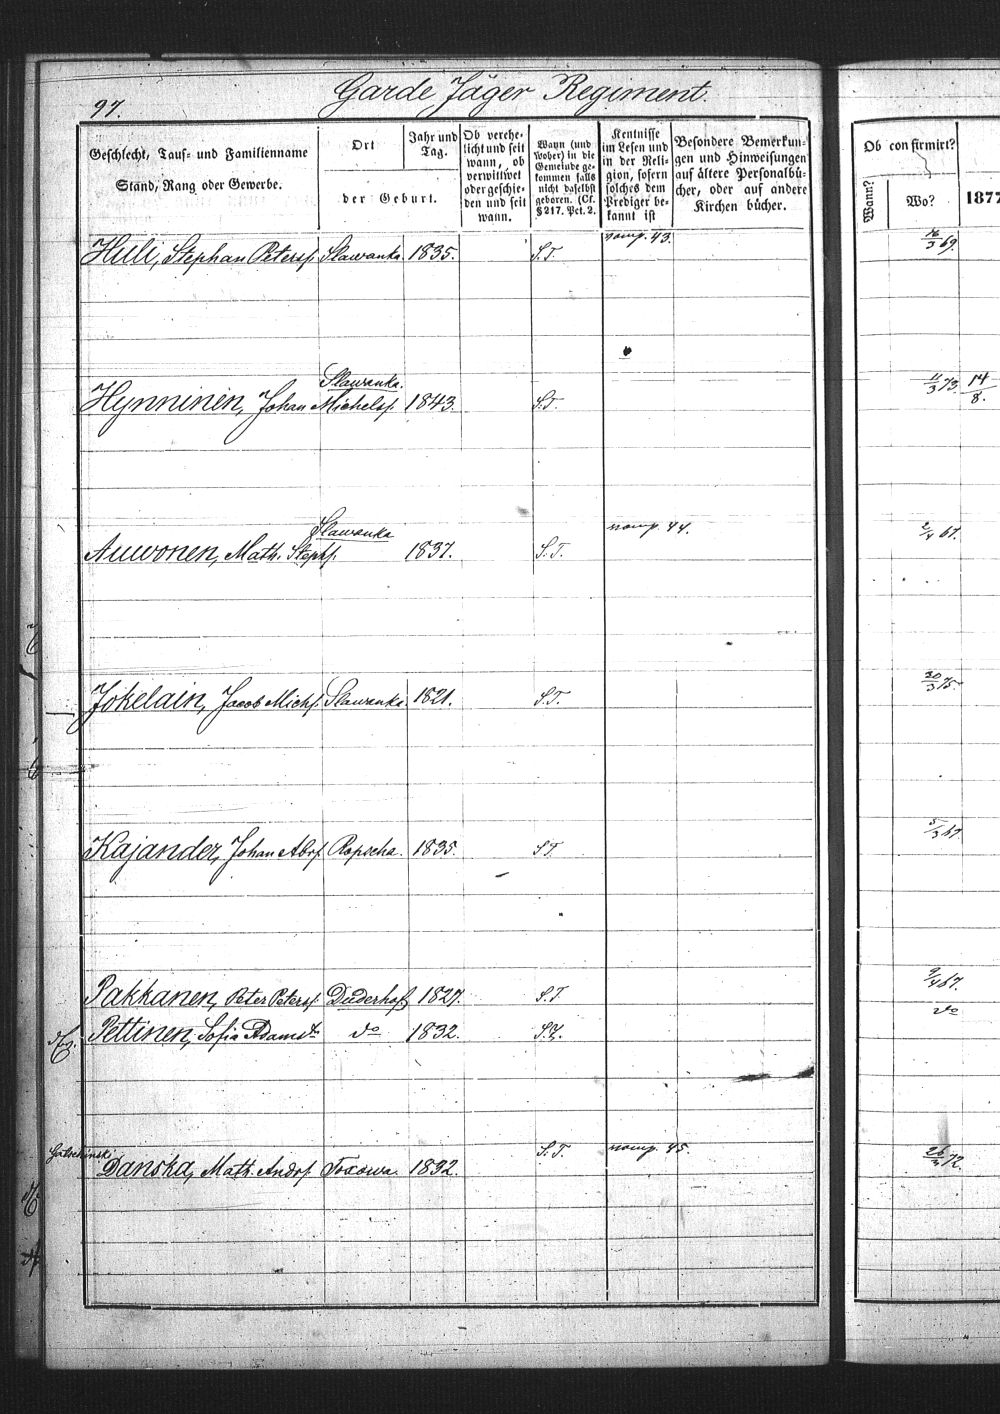 97.
Garde Jäger Regiment.
Geschlecht, Tauf- und Familienname
Stand, Rang oder Gewerbe.
Ort
Jahr und
Tag.
der Geburt.
Ob verehe-
licht und seit
wann, ob
verwittwet
oder geschie-
den und seit
wann.
Wann (und
woher) in die
Gemeinde ge-
kommen falls
nicht daselbst
geboren. (Cf.
§ 217. Pct. 2.
Kentnisse
im Lesen und
in der Reli-
gion, sofern
solches dem
Prediger be-
kannt ist
Besondere Bemerkun-
gen und Hinweisungen
auf ältere Personalbü-
cher, oder auf andere
Kirchen bücher.
Ob confirmirt?
Wann?
Wo?
1877
Huli, Stephan Petersf. Slawanka. 1835. S.T. 43. 16/3 69.
Slawanka.
Hynninen, Johan Michelsf. 1843. S.T. 11/3 73. 14/8.
Slawanka
Auwonen, Math. Stephf. 1837. S.T. 44. 2/4 67.
Jokelain, Jacob Michf. Slawanka. 1821. S.T. 20/3 75.
Kajander, Johan Abrf. Ropscha. 1835. S.T. 5/3 67
Pakkanen, Peter Petersf. Duderhof 1827. S.T. 9/4 67.
Pettinen, Sofia Adamst. do 1832. do
Danska, Math. Andrf. Toxowa. 1832. S.T. 45. 26/3 72.